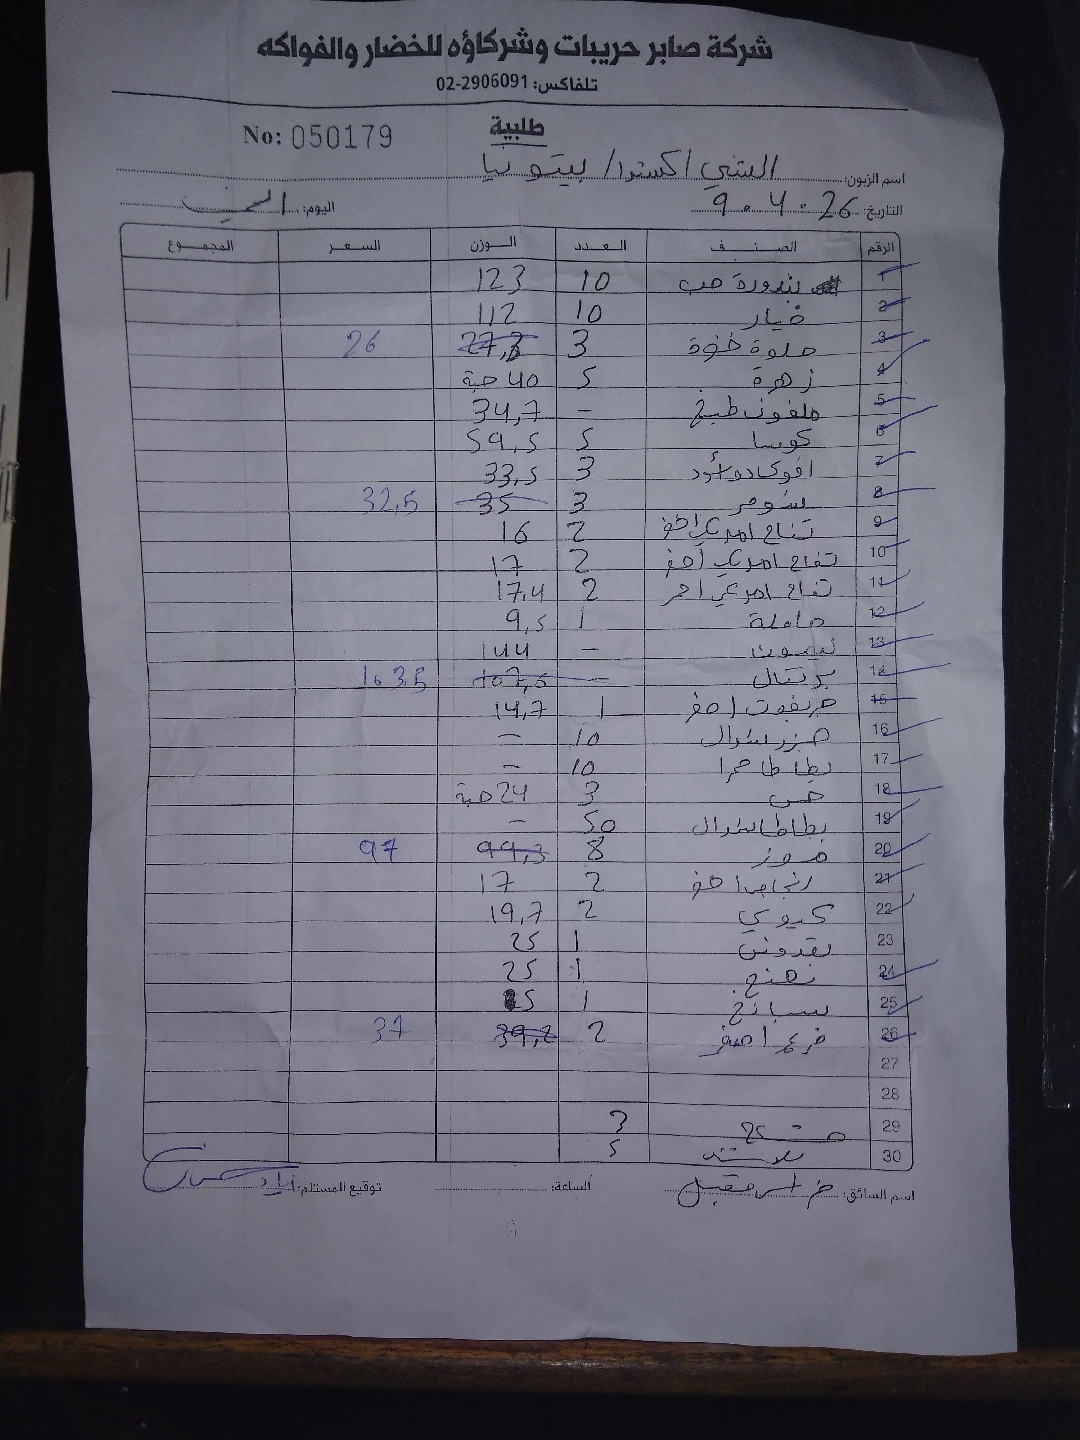 شركة صابر حريبات وشركاؤه للخضار والفواكه
تلفاكس: 02-2906091
طلبية
No: 050179
اسم الزبون: الشني اكسترا / بيتونيا
التاريخ: 26 . 4 . 9 اليوم:
الرقم الصنف العدد الوزن السعر المجموع
1 بندورة حب 10 123
2 خيار 10 112
3 حلوة 3 27,3 26
4 زهرة 5 40 حبة
5 ملفوف طبيخ - 34,7
6 كوسا 5 59,5
7 افوكادو 3 33,5
8 3 35 32,5
9 تفاح امريكي اخضر 2 16
10 تفاح امريكي اصفر 2 17
11 تفاح امريكي احمر 2 17,4
12 1 9,5
13 ليمون - 144
14 برتقال - 107,5 103,5
15 جريفوت احمر 1 14,7
16 جزر شوال 10 -
17 بطاطا حمرا 10 -
18 خس 3 24 حبة
19 بطاطا شوال 50 -
20 موز 8 99,3 97
21 انجاص اخضر 2 17
22 كيوي 2 19,7
23 بقدونس 1 25
24 نعنع 1 25
25 سبانخ 1 25
26 اصفر 2 39,2 37
27
28
29 3
30 5
اسم السائق: الساعة: توقيع المستلم: